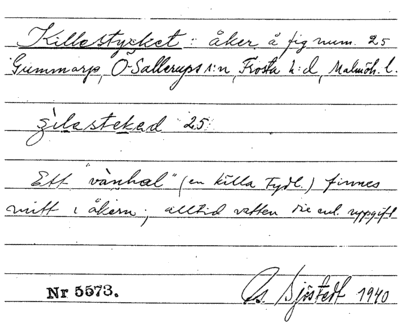 Killestycket: åker å fig num. 25
Gummarp, Ö-Sallerups s:n, Frosta h:d, Malmöh. l.
25
Ett "vånhål" (en källa tydl.) finnes
mitt i åkern; alltid vatten enl. uppgift
Nr 5573.
Gs. Sjöstedt 1940